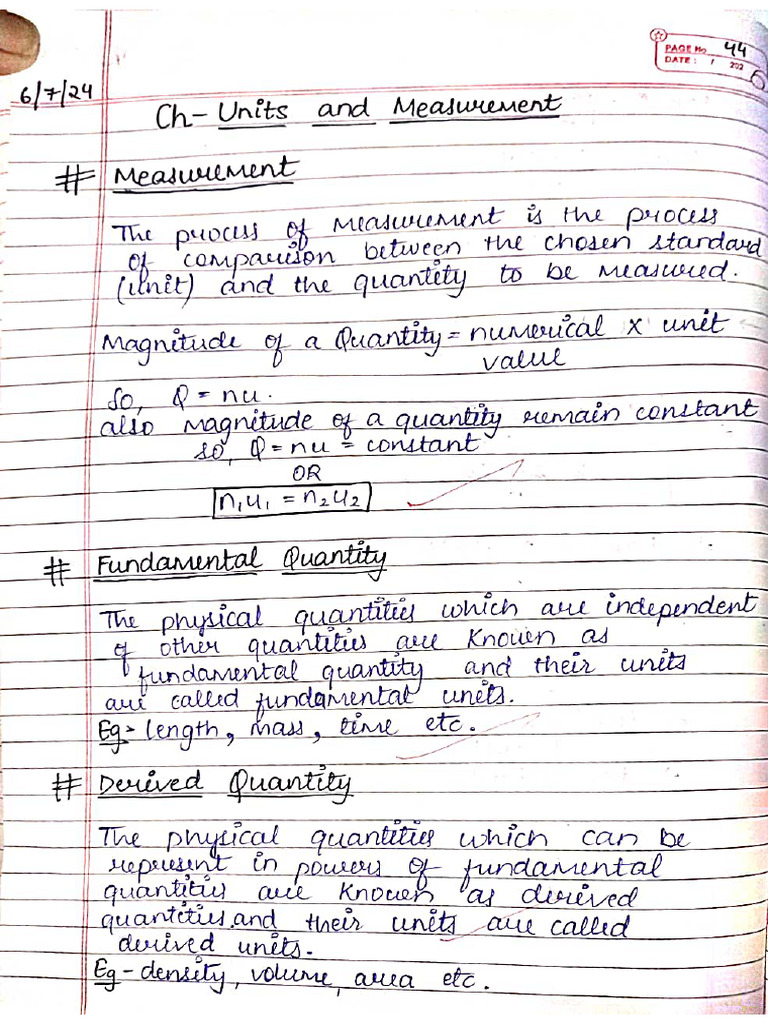 PAGE No 44
DATE: / 202
6/7/24
Ch- Units and Measurement
# Measurement
The process of measurement is the process
of comparison between the chosen standard
(unit) and the quantity to be measured.
Magnitude of a Quantity = numerical x unit
value
So, Q = nu.
also Magnitude of a quantity remain constant
so, Q = nu = constant
OR
n₁u₁ = n₂u₂
# Fundamental Quantity
The physical quantities which are independent
of other quantities are known as
fundamental quantity and their units
are called fundamental units.
Eg- length, mass, time etc.
# Derived Quantity
The physical quantities which can be
represent in powers of fundamental
quantities are known as derived
quantities.and their units are called
derived units.
Eg - density, volume, area etc.